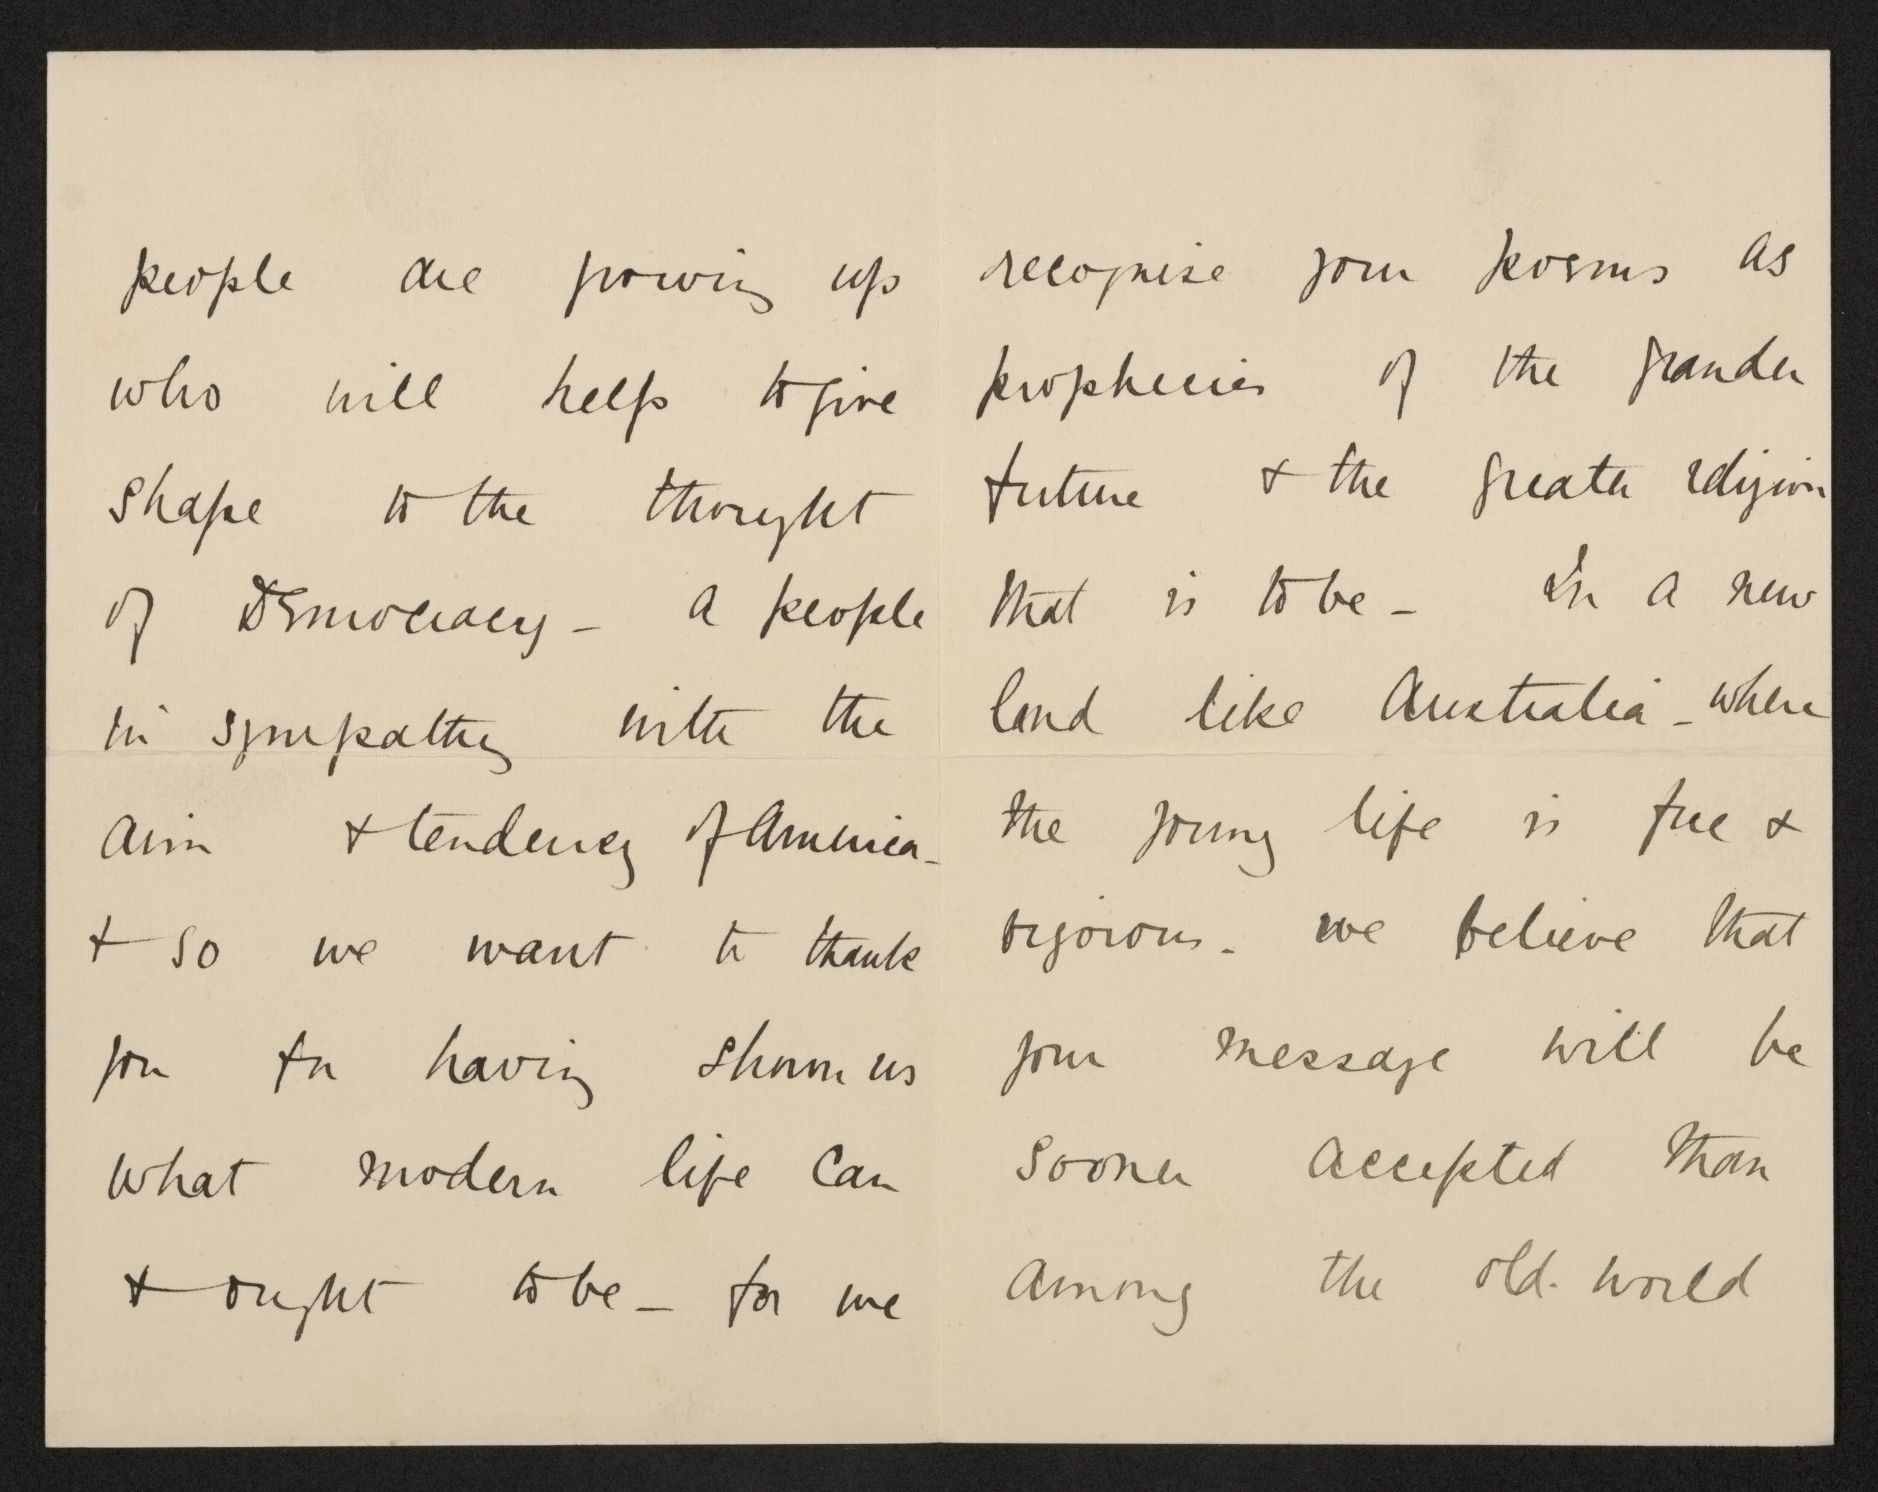 people are growing up
who will help to give
shape to the thought
of Democracy – a people
in sympathy with the
aim & tendency of America –
& so we want to thank
you for having shown us
what modern life can
& ought to be – for we
recognise your poems as
prophecies of the grander
future & the greater religion
that is to be – In a new
land like Australia – where
the young life is free &
vigorous – we believe that
your message will be
sooner accepted than
among the old. world